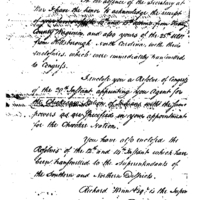 In the absence of the Secretary at
War I have the honor to acknowledge the receipt
of
County Virginia and also yours of the 25th
from Pittsborough, North Carolina, with their
enclosures, which were immediately transmitted
to Congress.
I enclose you a Resolve of Congress
of the 29th Instant appointing you Agent for
the Chickasaw Nation of Indians with the same
powers as are specified in your appointment
for the Choctaw Nation.
You have also enclosed the
Resolves of the Instant which have
been transmitted to the Superintendents of
the Southern and Northern Districts.
Richard Winn Esqr. is the Super